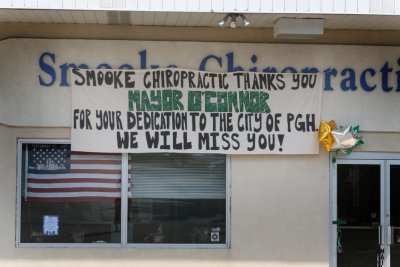 Smooke Chiropractic
SMOOKE CHIROPRACTIC THANKS YOU
MAYOR O'CONNOR
FOR YOUR DEDICATION TO THE CITY OF PGH.
WE WILL MISS YOU!